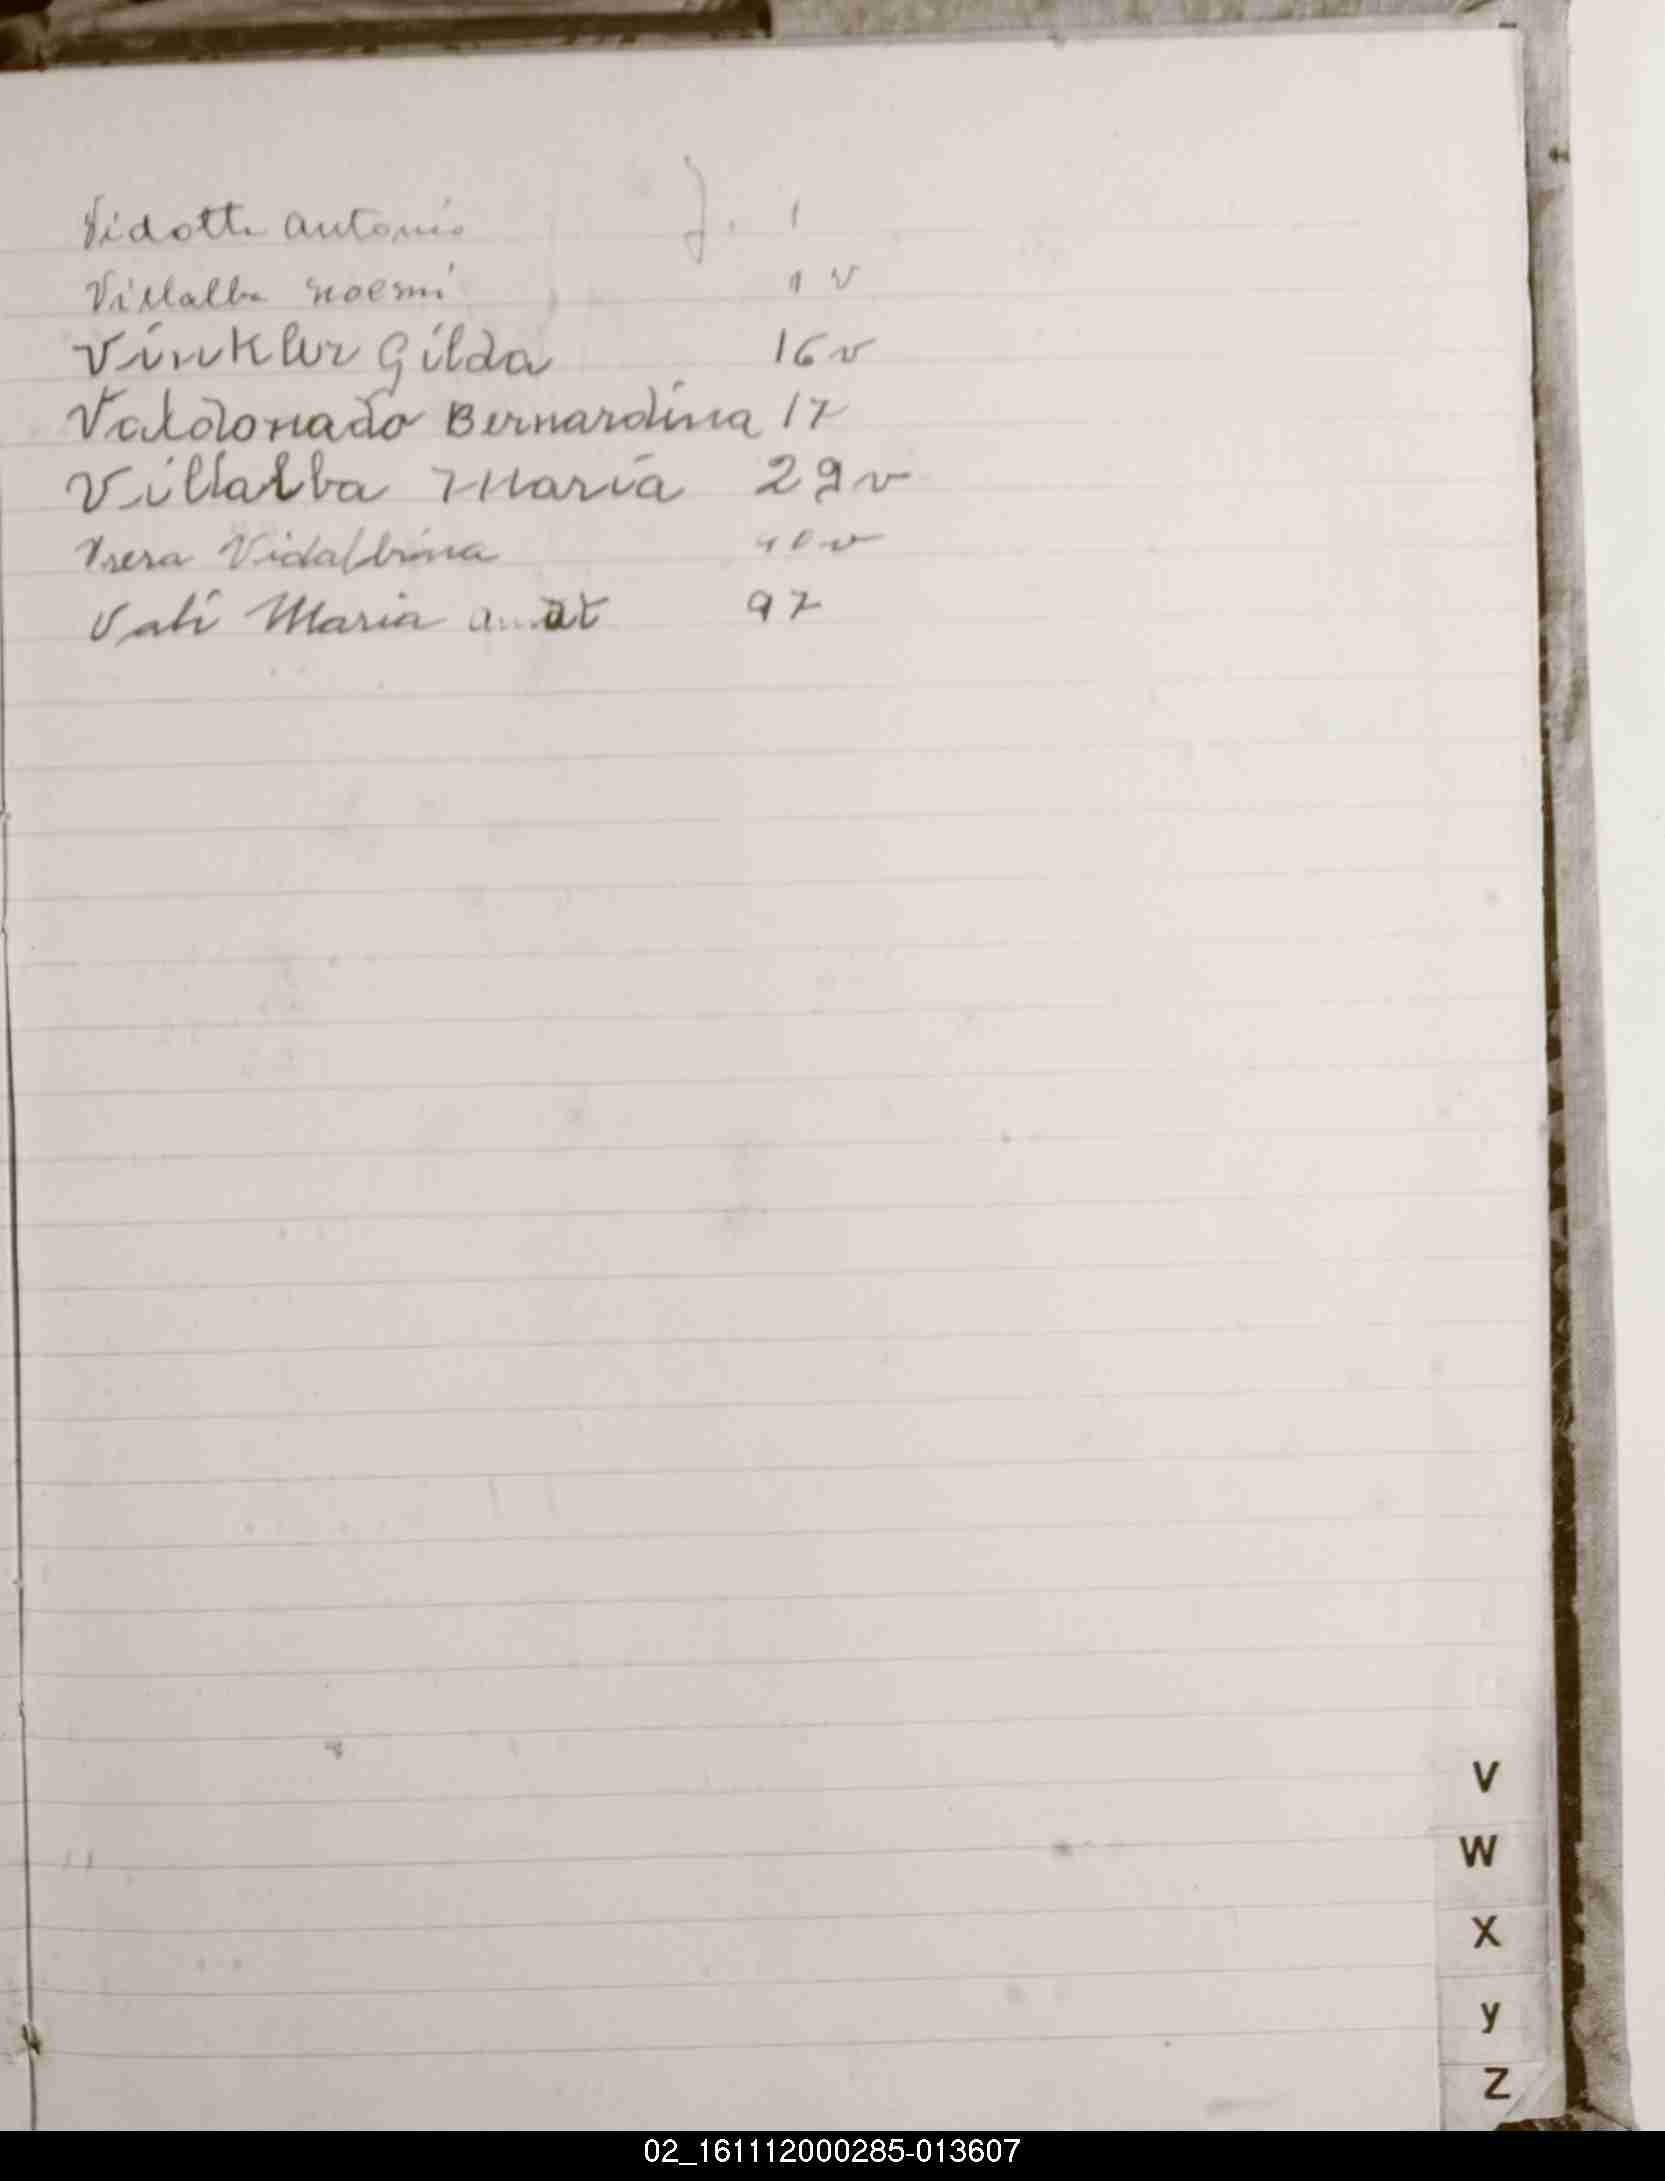 Vidotto Antonio f. 1
Villalba Noemi 1 v
Vinkler Gilda 16 v
Valdonado Bernardina 17
Villalba Maria 29 v
Vidalbina v
Vali Maria 97
V
W
X
y
Z
02_161112000285-013607